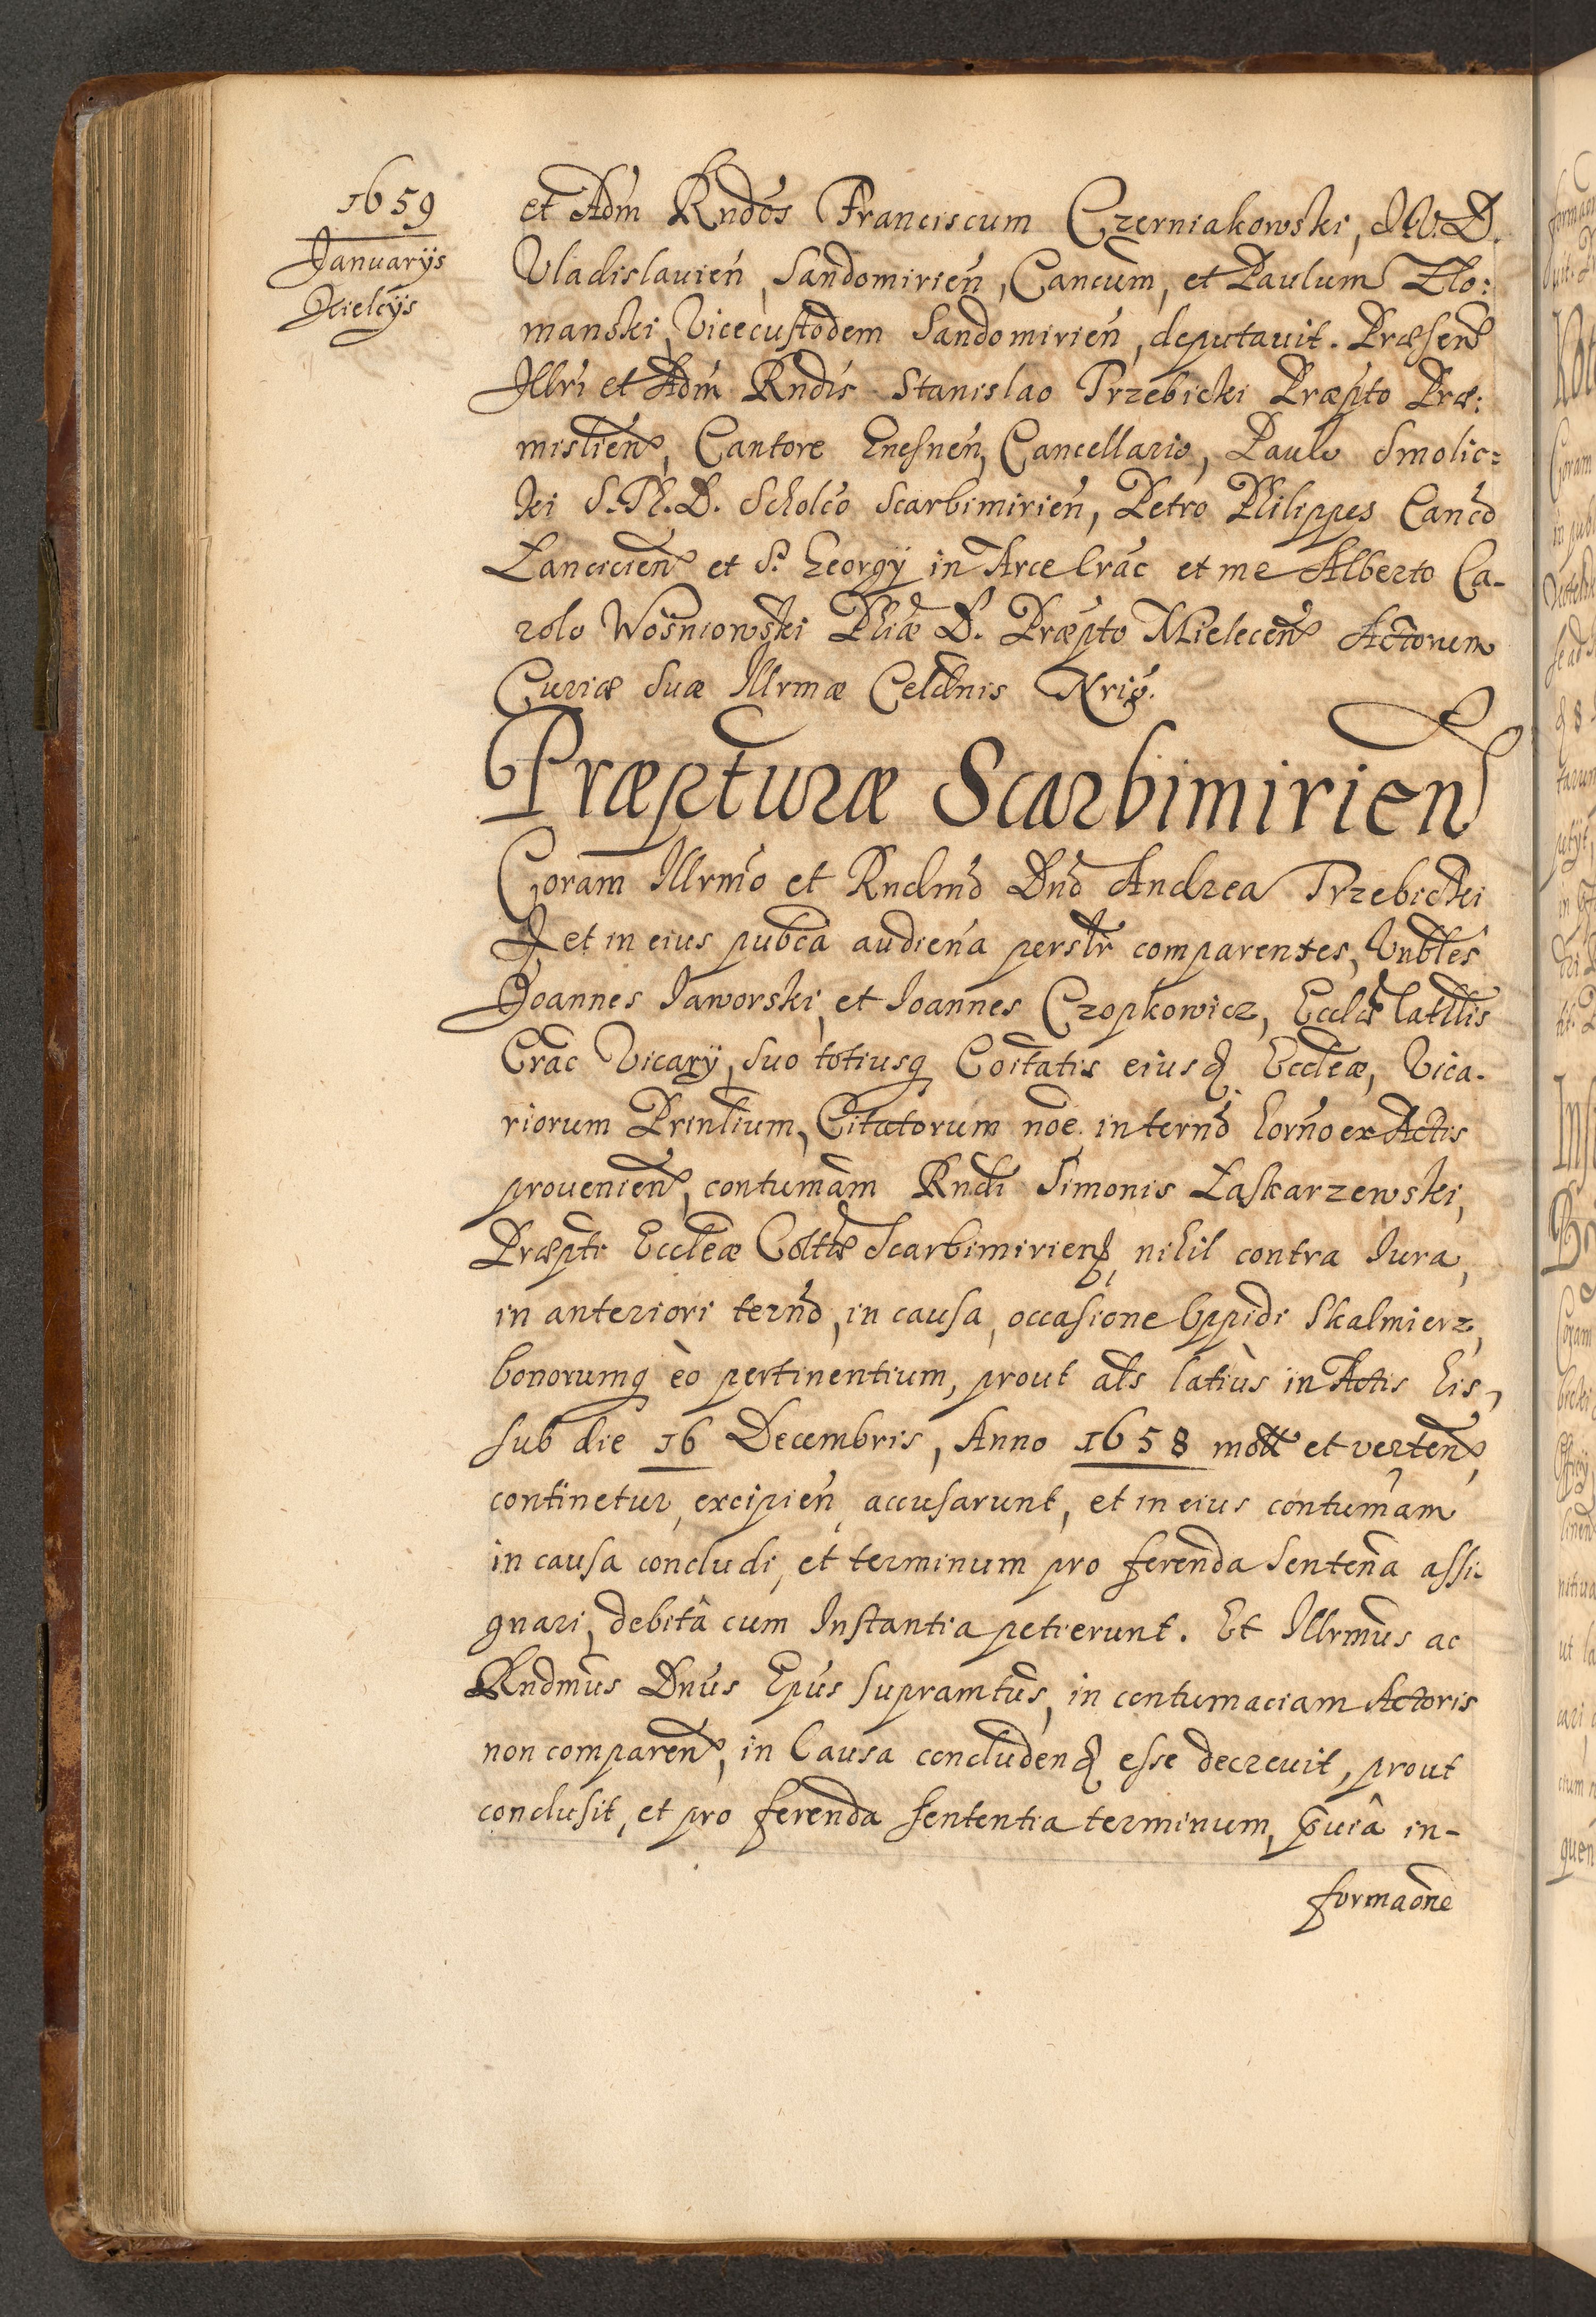 1659
Januarÿs
Kielcÿs
et Adm̃ Rndos Franciscum Czerniakowski, I.V.D.
Vladislauien̄, Sandomirien̄, Cancum, et Paulum Zło:
manski, Vicecustodem Sandomirien̄, deputauit. Præsen
Illri et Adm̃ Rndis Stanislao Trzebicki Præpto Præ:
mislien, Cantore Gnesnen̄, Cancellario, Paulo Smolic=
ki S.Th.D. Scholco Scarbimirien̄, Petro Philippes Canco
Lancicien et S. Georgÿ in Arce Crac et me Alberto Ca-
rolo Wosniowski Phiæ D. Præpto Mielecen Actorum
Curiæ Suæ Illrmæ Celdnis Nrio.
Præpturæ Scarbimirien
Coram Illrmo et Rndmo Dno Andrea Trzebicki
et in eius pubca audiena perslr comparentes, Vnbles
Joannes Jaworski, et Joannes Czopkowicz, Ecclæ Catllis
Crac Vicarÿ, suo totiusq Coitatis eiusd Eccleæ, Vica-
riorum Prinlium, Citatorum noe, in terno horno ex Actis
prouenien, contumam Rndi Simonis Łaskarzewski,
Præpti Eccleæ Colltæ Scarbimirien, nihil contra Jura,
in anteriori terno, in causa, occasione Oppidi Skalmierz,
bonorumq èo pertinentium, prout als latiùs in Actis his,
sub die 16 Decembris, Anno 1658 mott et verten,
continetur, excipien̄ accusarunt, et in eius contumam
in causa concludi, et terminum pro ferenda Sentena assi-
gnari, debitâ cum Instantia petierunt. Et Illrmus ac
Rndmus Dnus Epus supramtus, in contumaciam Actoris
non comparen, in Causa concludend esse decreuit, prout
conclusit, et pro ferenda sententia terminum, p̄uiâ in-
formaone